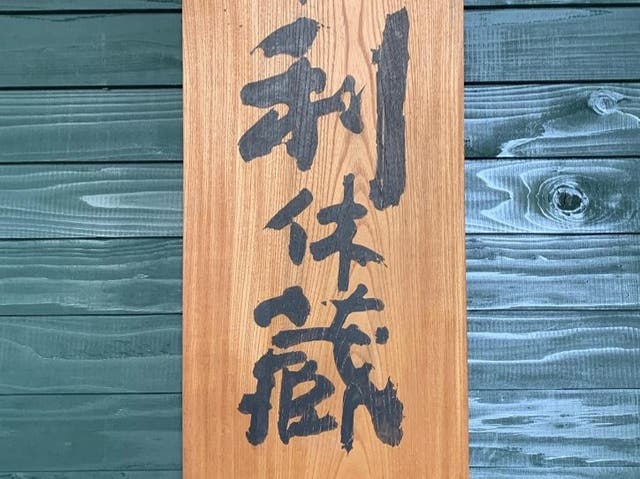 利休蔵